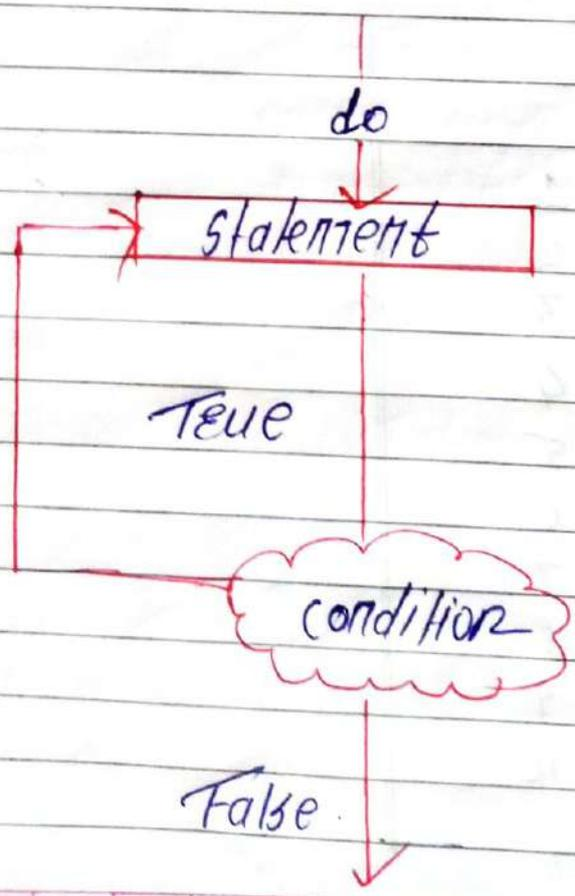 do
statement
True
condition
False.